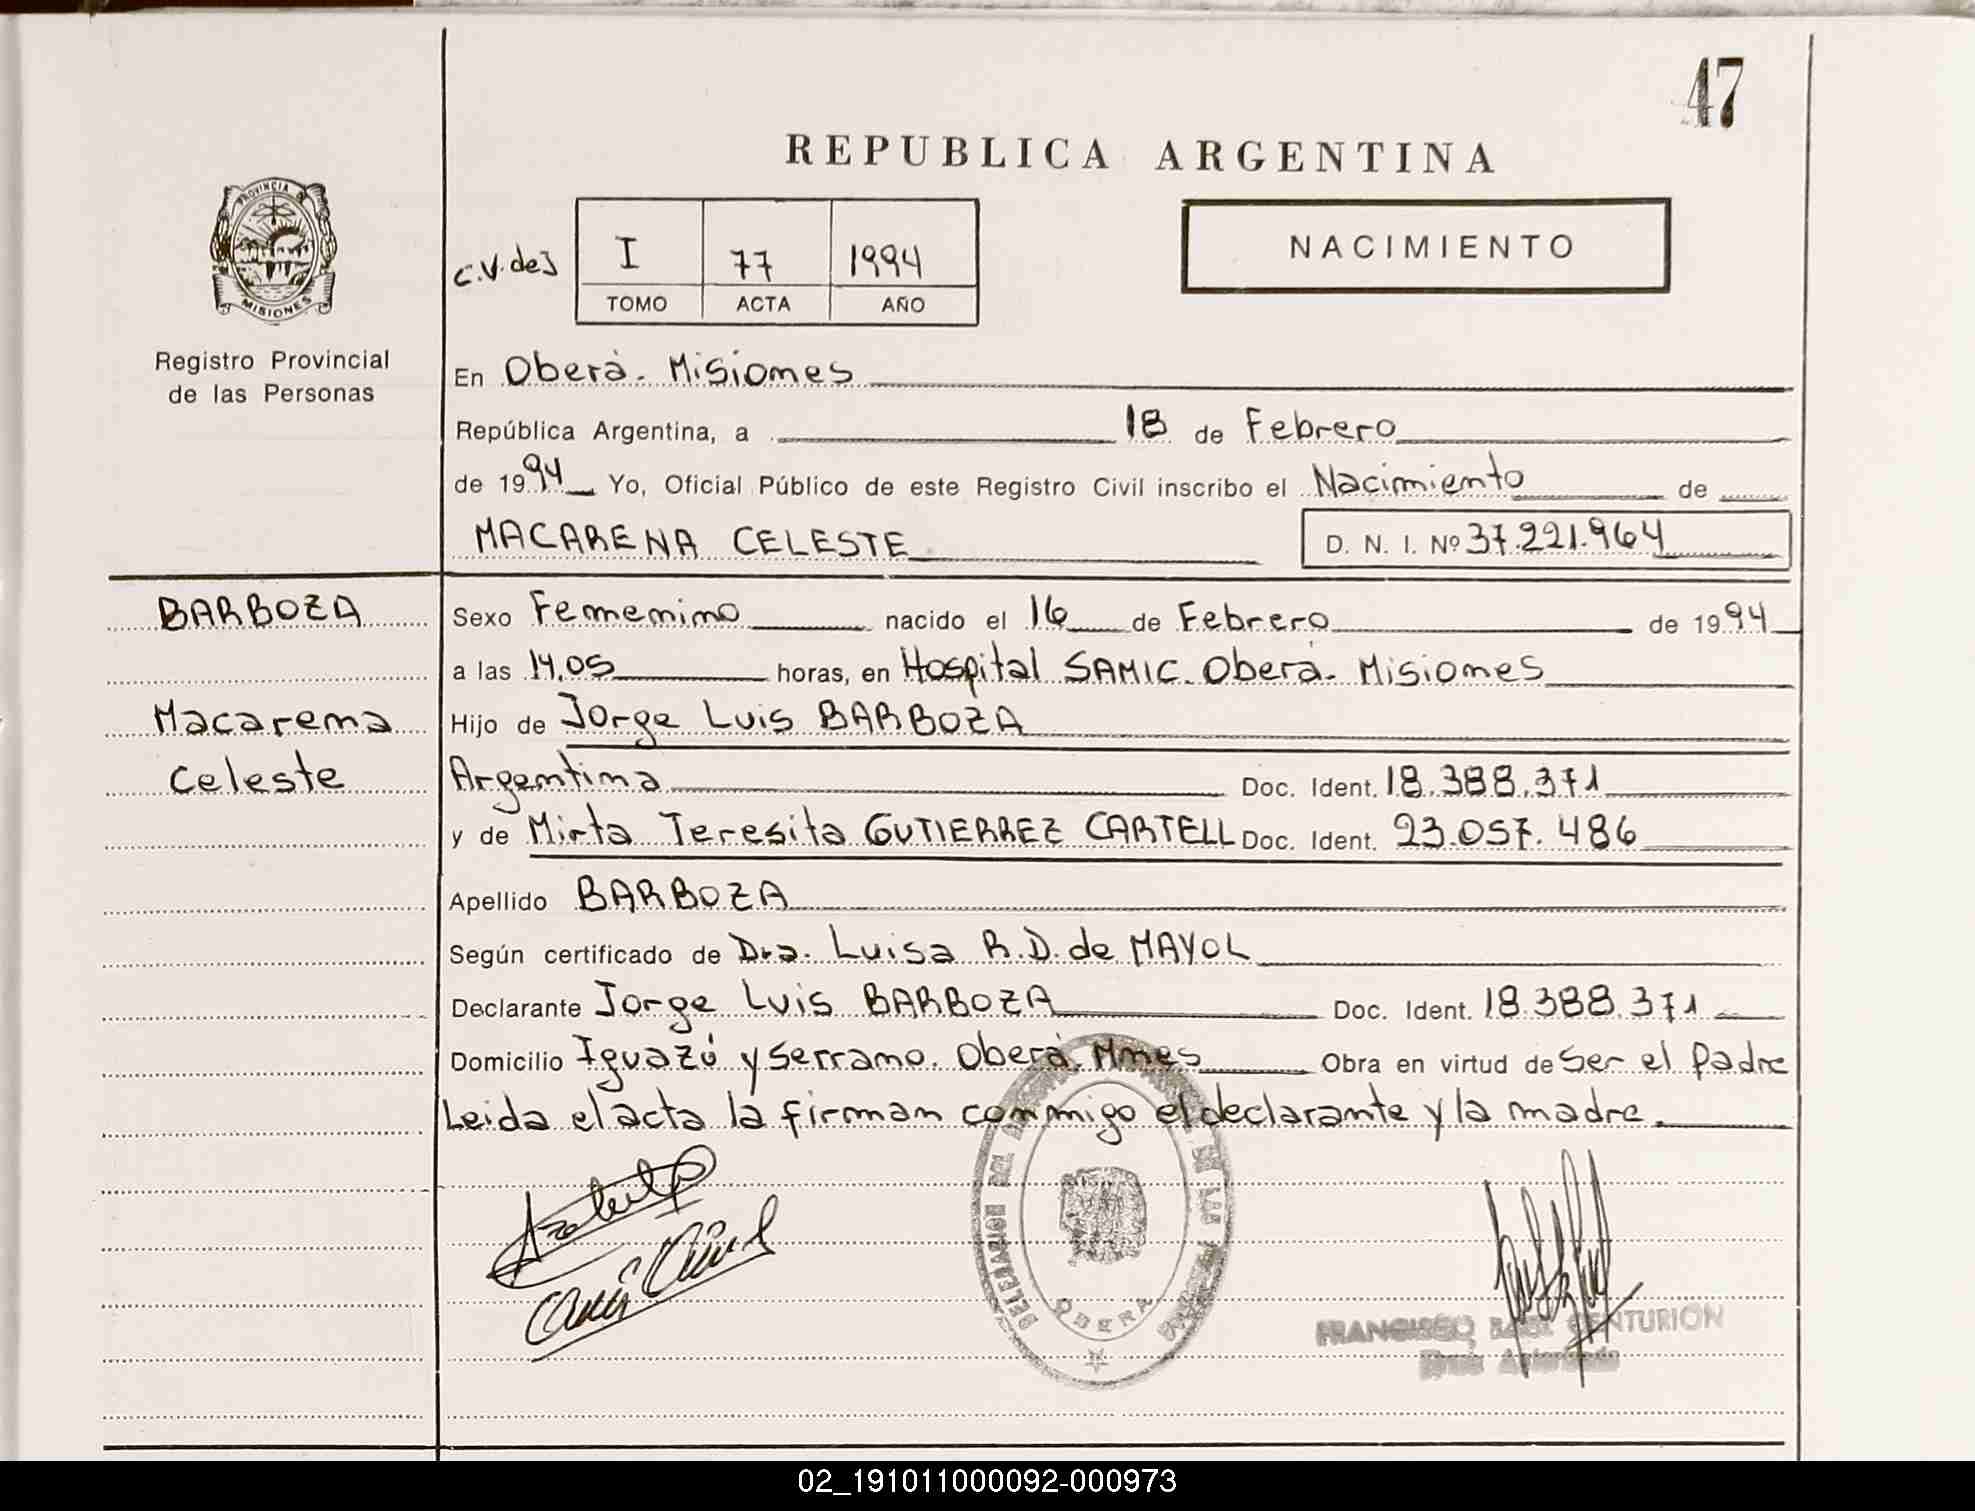 47
REPUBLICA ARGENTINA
PROVINCIA DE
MISIONES
Registro Provincial
de las Personas
C.V. de J
I 77 1994
TOMO ACTA AÑO
NACIMIENTO
En Oberá. Misiones
República Argentina, a 18 de Febrero
de 1994 Yo, Oficial Público de este Registro Civil inscribo el Nacimiento de
MACARENA CELESTE D. N. I. Nº 37.221.964
BARBOZA Sexo Femenino nacido el 16 de Febrero de 1994
a las 14,05 horas, en Hospital SAMIC. Oberá. Misiones
Macarena Hijo de Jorge Luis BARBOZA
Celeste Argentina Doc. Ident. 18.388.371
y de Mirta Teresita GUTIERREZ CARTELL Doc. Ident. 23.057.486
Apellido BARBOZA
Según certificado de Dra. Luisa R.D. de MAYOL
Declarante Jorge Luis BARBOZA Doc. Ident. 18.388.371
Domicilio Iguazú y Serrano. Oberá. Mnes Obra en virtud de Ser el Padre
Leida el acta la firman conmigo el declarante y la madre.
OBERA
FRANCISCO RAUL CENTURION
02_191011000092-000973